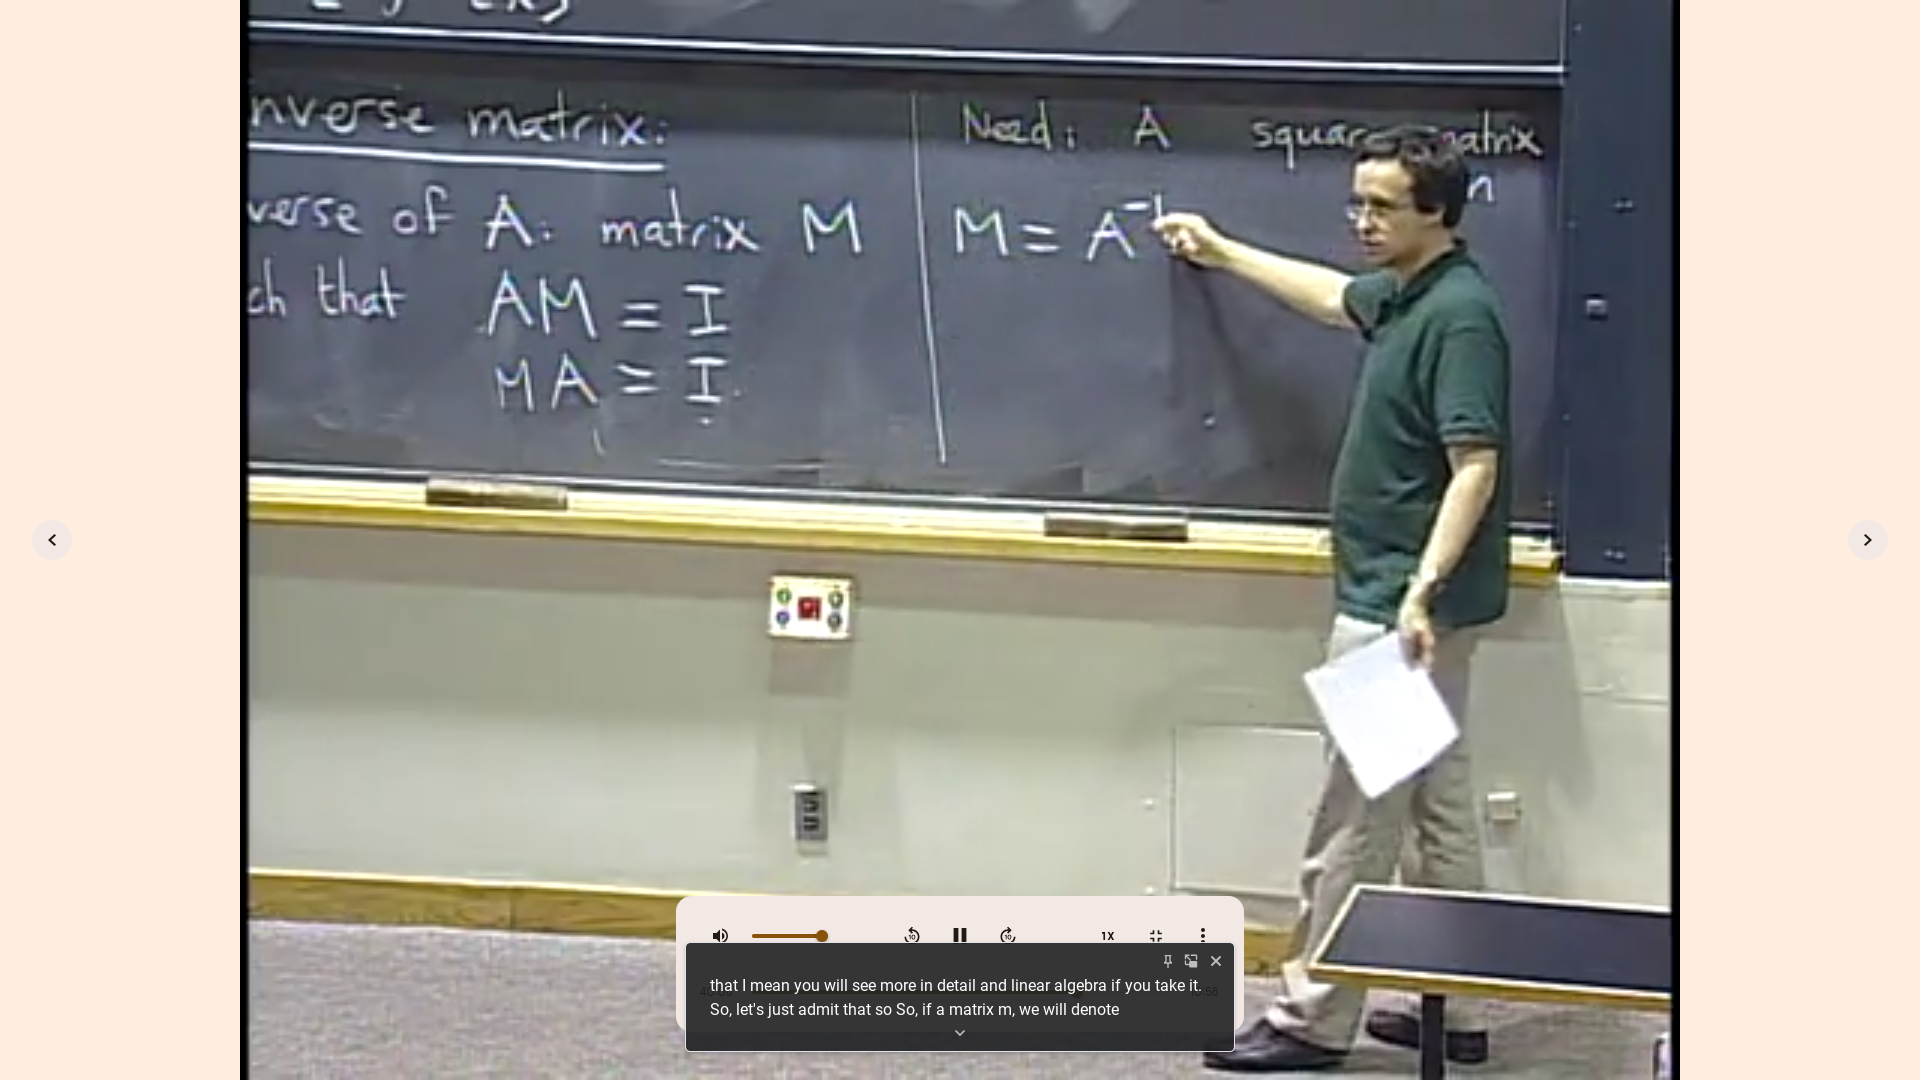 nverse matrix:
verse of A: matrix M
ch that AM = I
MA = I.
Need: A square matrix
n
M = A⁻¹
1X
that I mean you will see more in detail and linear algebra if you take it.
So, let's just admit that so So, if a matrix m, we will denote